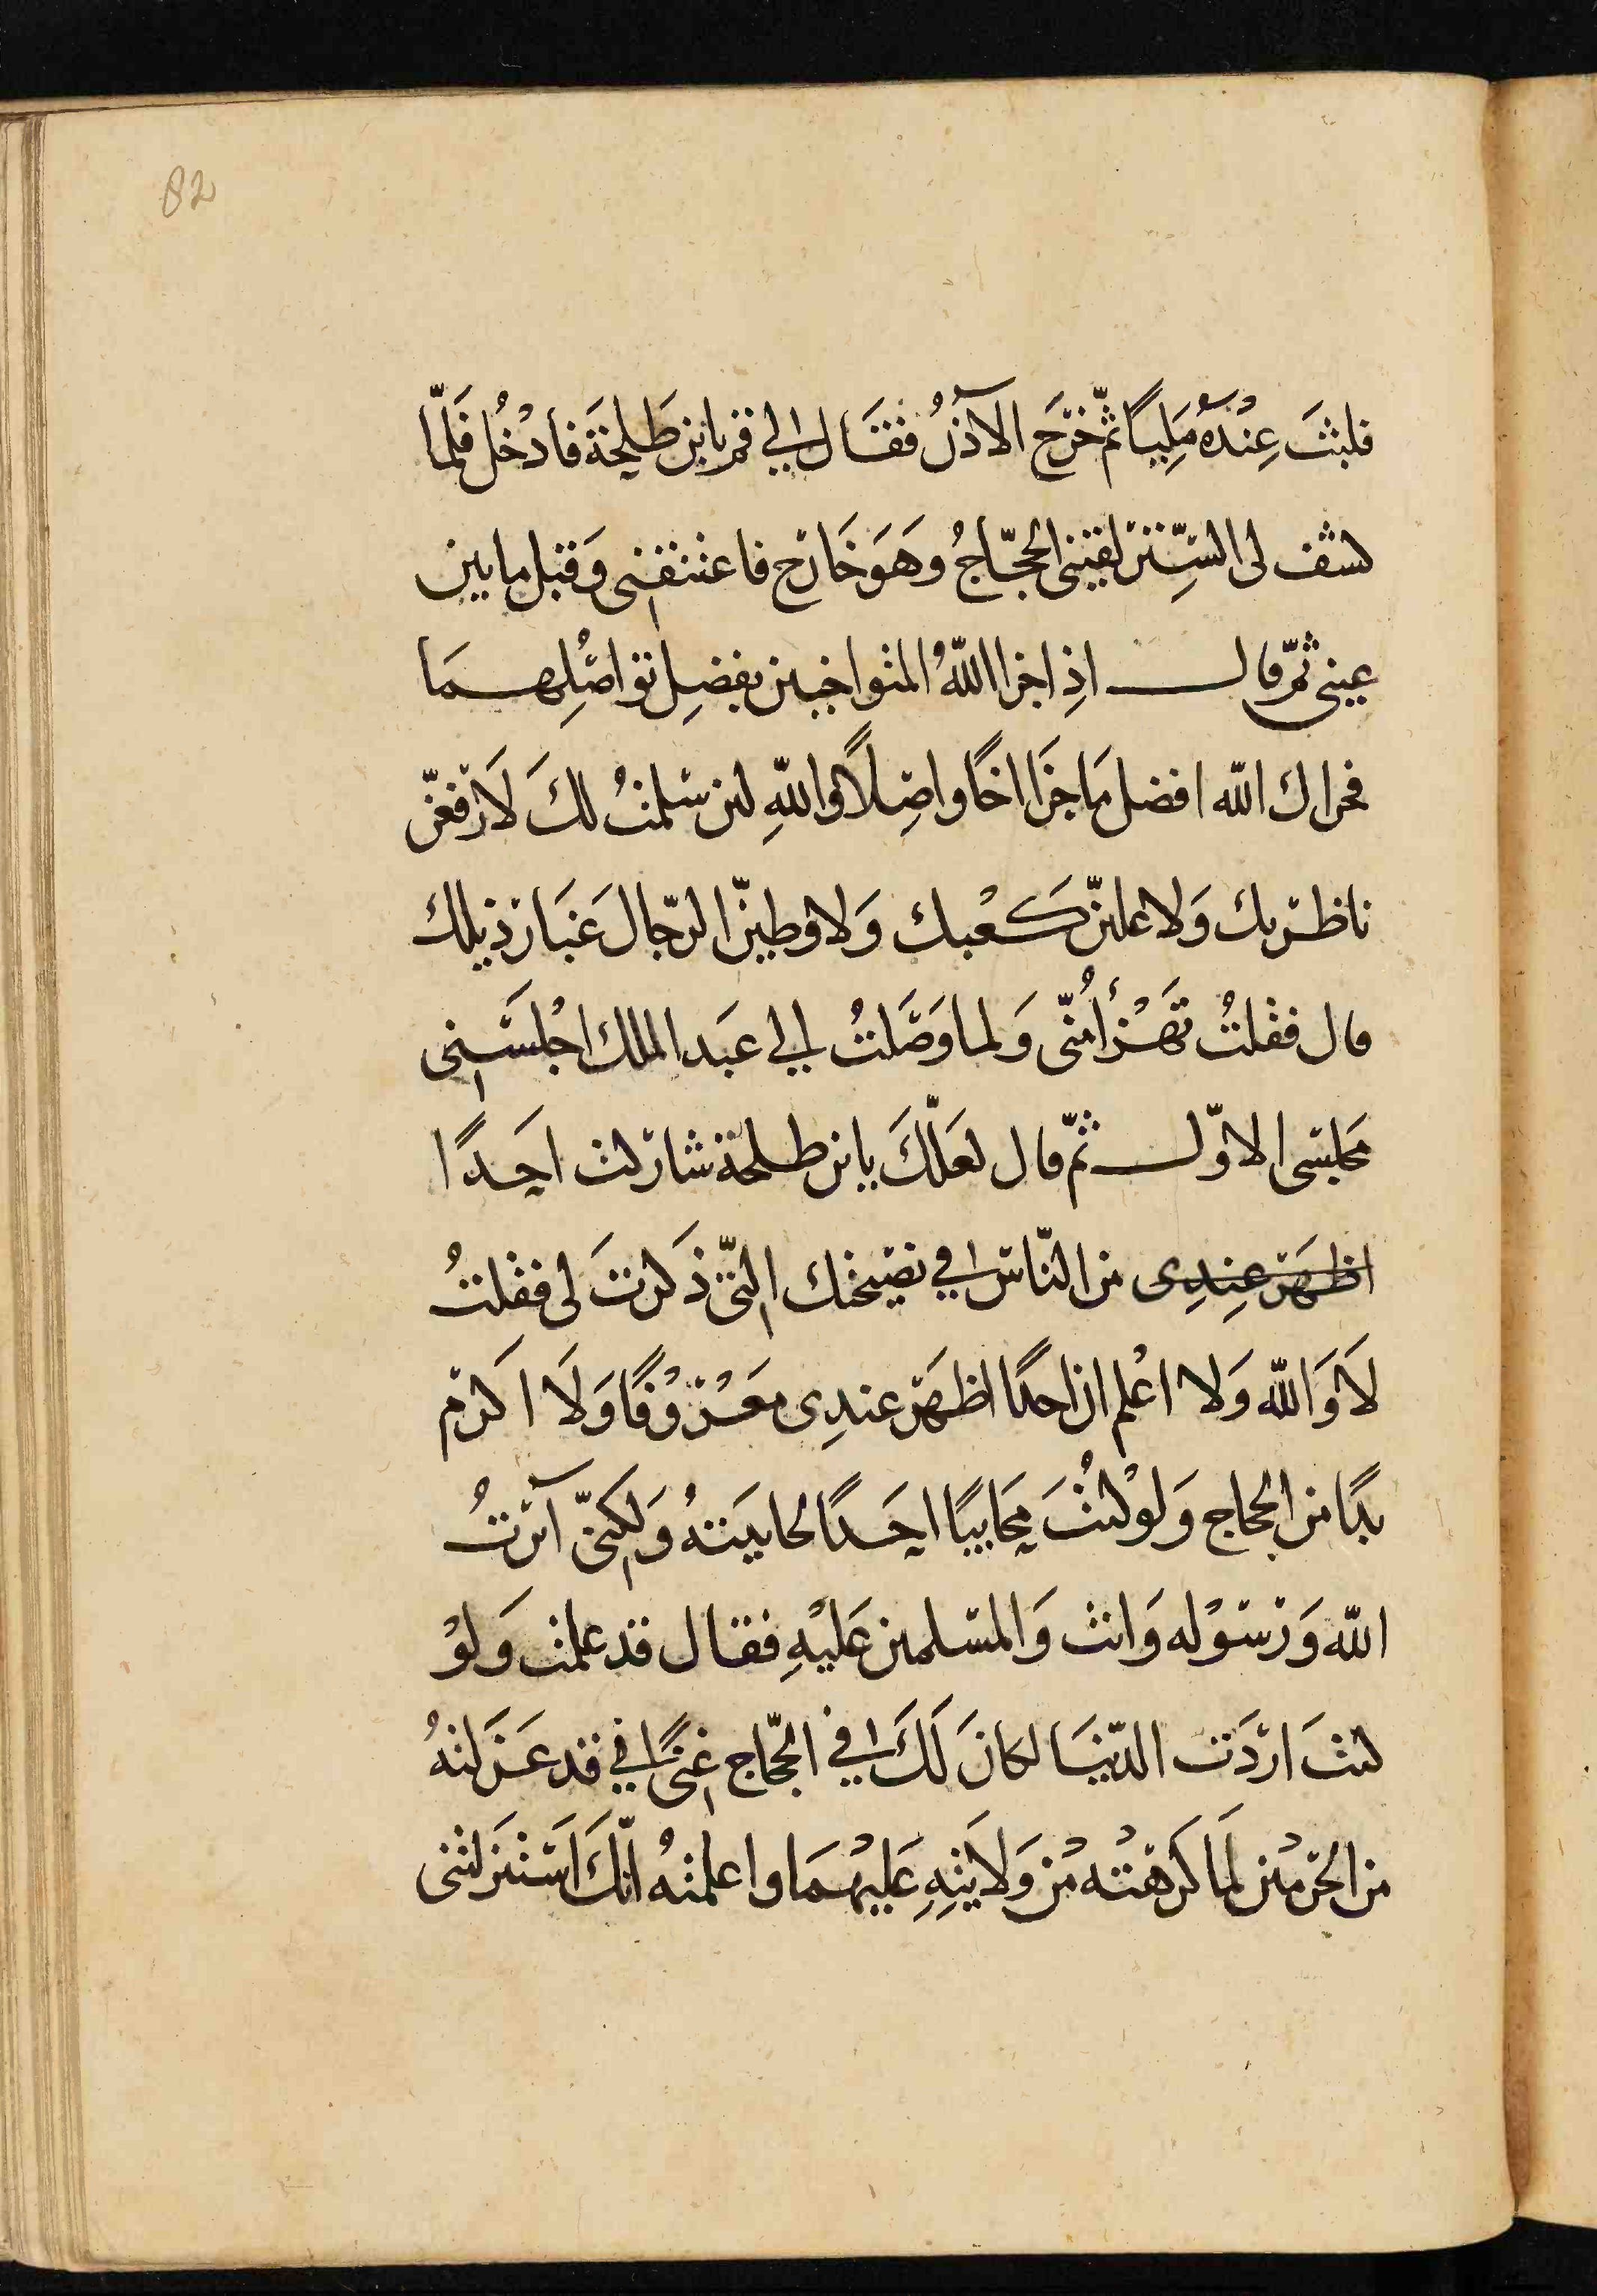 82
فلبثَ عِنْدهُ مَلِيًا ثمّ خَرَجَ الآذنُ فقَال الي قم يابن طَلْحَة فادْخُل فَلمّا
كشف لى السِّتر لقينى الحجّاجُ وهَوَ خَارج فاعتنقنى وَقبل ما بين
عينى ثمّ قال اذِا جزا اللهُ المتواخيين بفضلِ تواصُلِهمَا
فجزاك اللّه افضل مَا جزَا اخًا واصِلاً واللّهِ لئن سَلمتُ لكَ لاَرفعنّ
ناظريك وَلاعلينّ كعْبك وَلاوطينّ الرّجال غبَار ذيلك
قال فقلتُ تَهْزأُ منّى وَلما وَصَلتُ الي عَبد الملك اجْلسَنى
مَجلسى الاوّل ثمّ قال لعَلّكَ يابن طلحة شاركت احَدًا
اظهَر عِندِى من النّاس في نصيحتك التّى ذكرتَ لى فقلتُ
لاَ وَاللّه وَلا اعْلم ان احدًا اظهَر عندِى معَرْوْفًا وَلاَ اكرم
يدًا من الحجاج وَلوْ كنُتَ محَابيًا احَدًا لحابيَتهُ وَلكِنّى آثرتُ
اللّه وَرسَوْله وَانت وَالمسَلمين عَليْهِ فقال قد علمت وَلوْ
كنتَ ارَدَت الدّنيَا لكانَ لَكَ في الحجّاج غنىً في قد عَزَلتهُ
من الحرَمْين لَما كَرهْته مْن وَلايَتِهِ عَليْهمَا واعلمتهُ انّكَ اَستَنزَلتنى